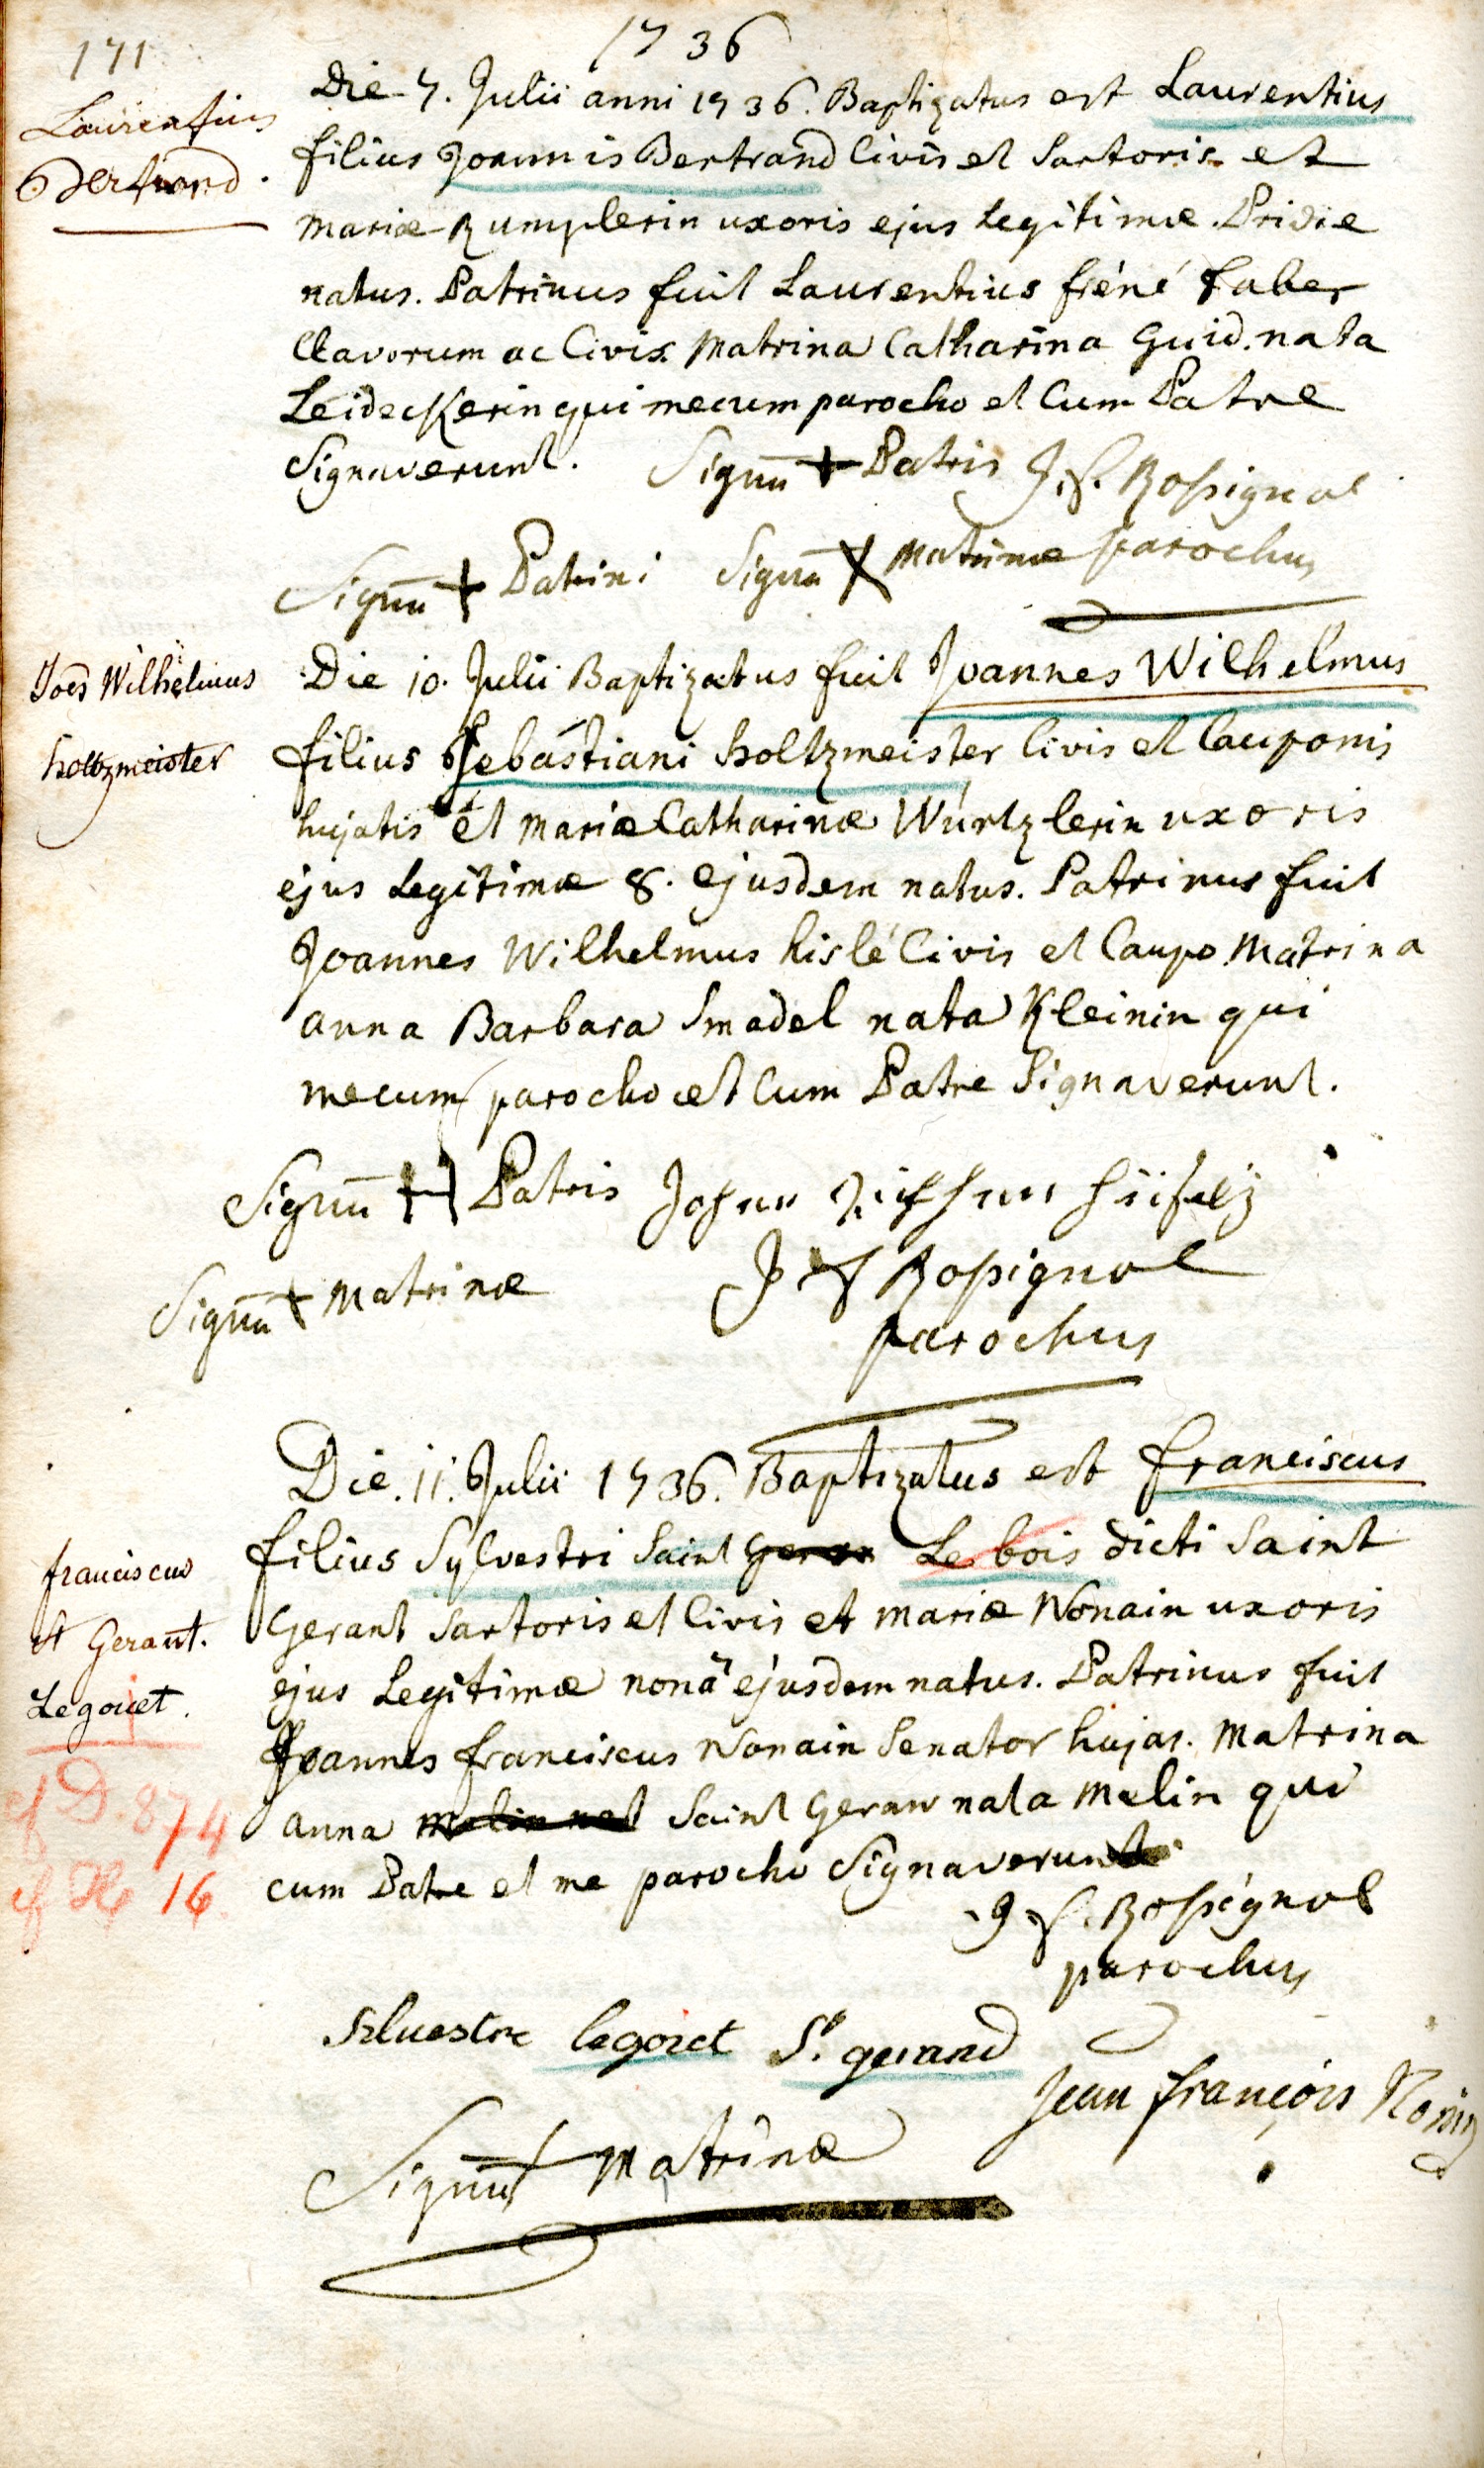 171
1736
Laurentius
Bertrand.
Die 7. Julii anni 1736. Baptizatus est Laurentius
filius Joannis Bertrand Civis et Sartoris et
Mariæ Rumplerin uxoris ejus legitimæ. Pridie
natus. Patrinus fuit Laurentius fréné faber
Clavorum ac Civis Matrina Catharina Guid. nata
Leideckerin qui mecum parocho et Cum Patre
Signaverunt. Signū + Patris J. f. Rossignol
Signū + Patrini Signū + Matrinæ parochus
Joes Wilhelmus
holtzmeister
Die 10. Julii Baptizatus fuit Joannes Wilhelmus
filius Sebastiani Holtzmeister Civis et Cauponis
hujatis et Mariæ Catharinæ Würtzlerin uxoris
ejus legitimæ 8. ejusdem natus. Patrinus fuit
Joannes Wilhelmus hislé Civis et Caupo Matrina
anna Barbara Smadel nata Kleinin qui
mecum parocho et Cum Patre Signaverunt.
Signū Patris Johan
Signū + Matrinæ J f Rossignol
parochus
franciscus
St Gerant.
Legouet.
cf D. 874
cf 16.
Die. 11. Julii 1736. Baptizatus est franciscus
filius Sylvestri Saint Geran Le bois dicti Saint
Gerant Sartoris et Civis et Mariæ Nonain uxoris
ejus Legitimæ nonâ ejusdem natus. Patrinus fuit
Joannes franciscus Nonain Senator hujas. Matrina
anna Saint Geran nata Melin qui
cum Patre et me parocho Signaverunt
J f. Rossignol
parochus
Siluestre legoret St. gerand
Jean françois
Signū Matrinæ